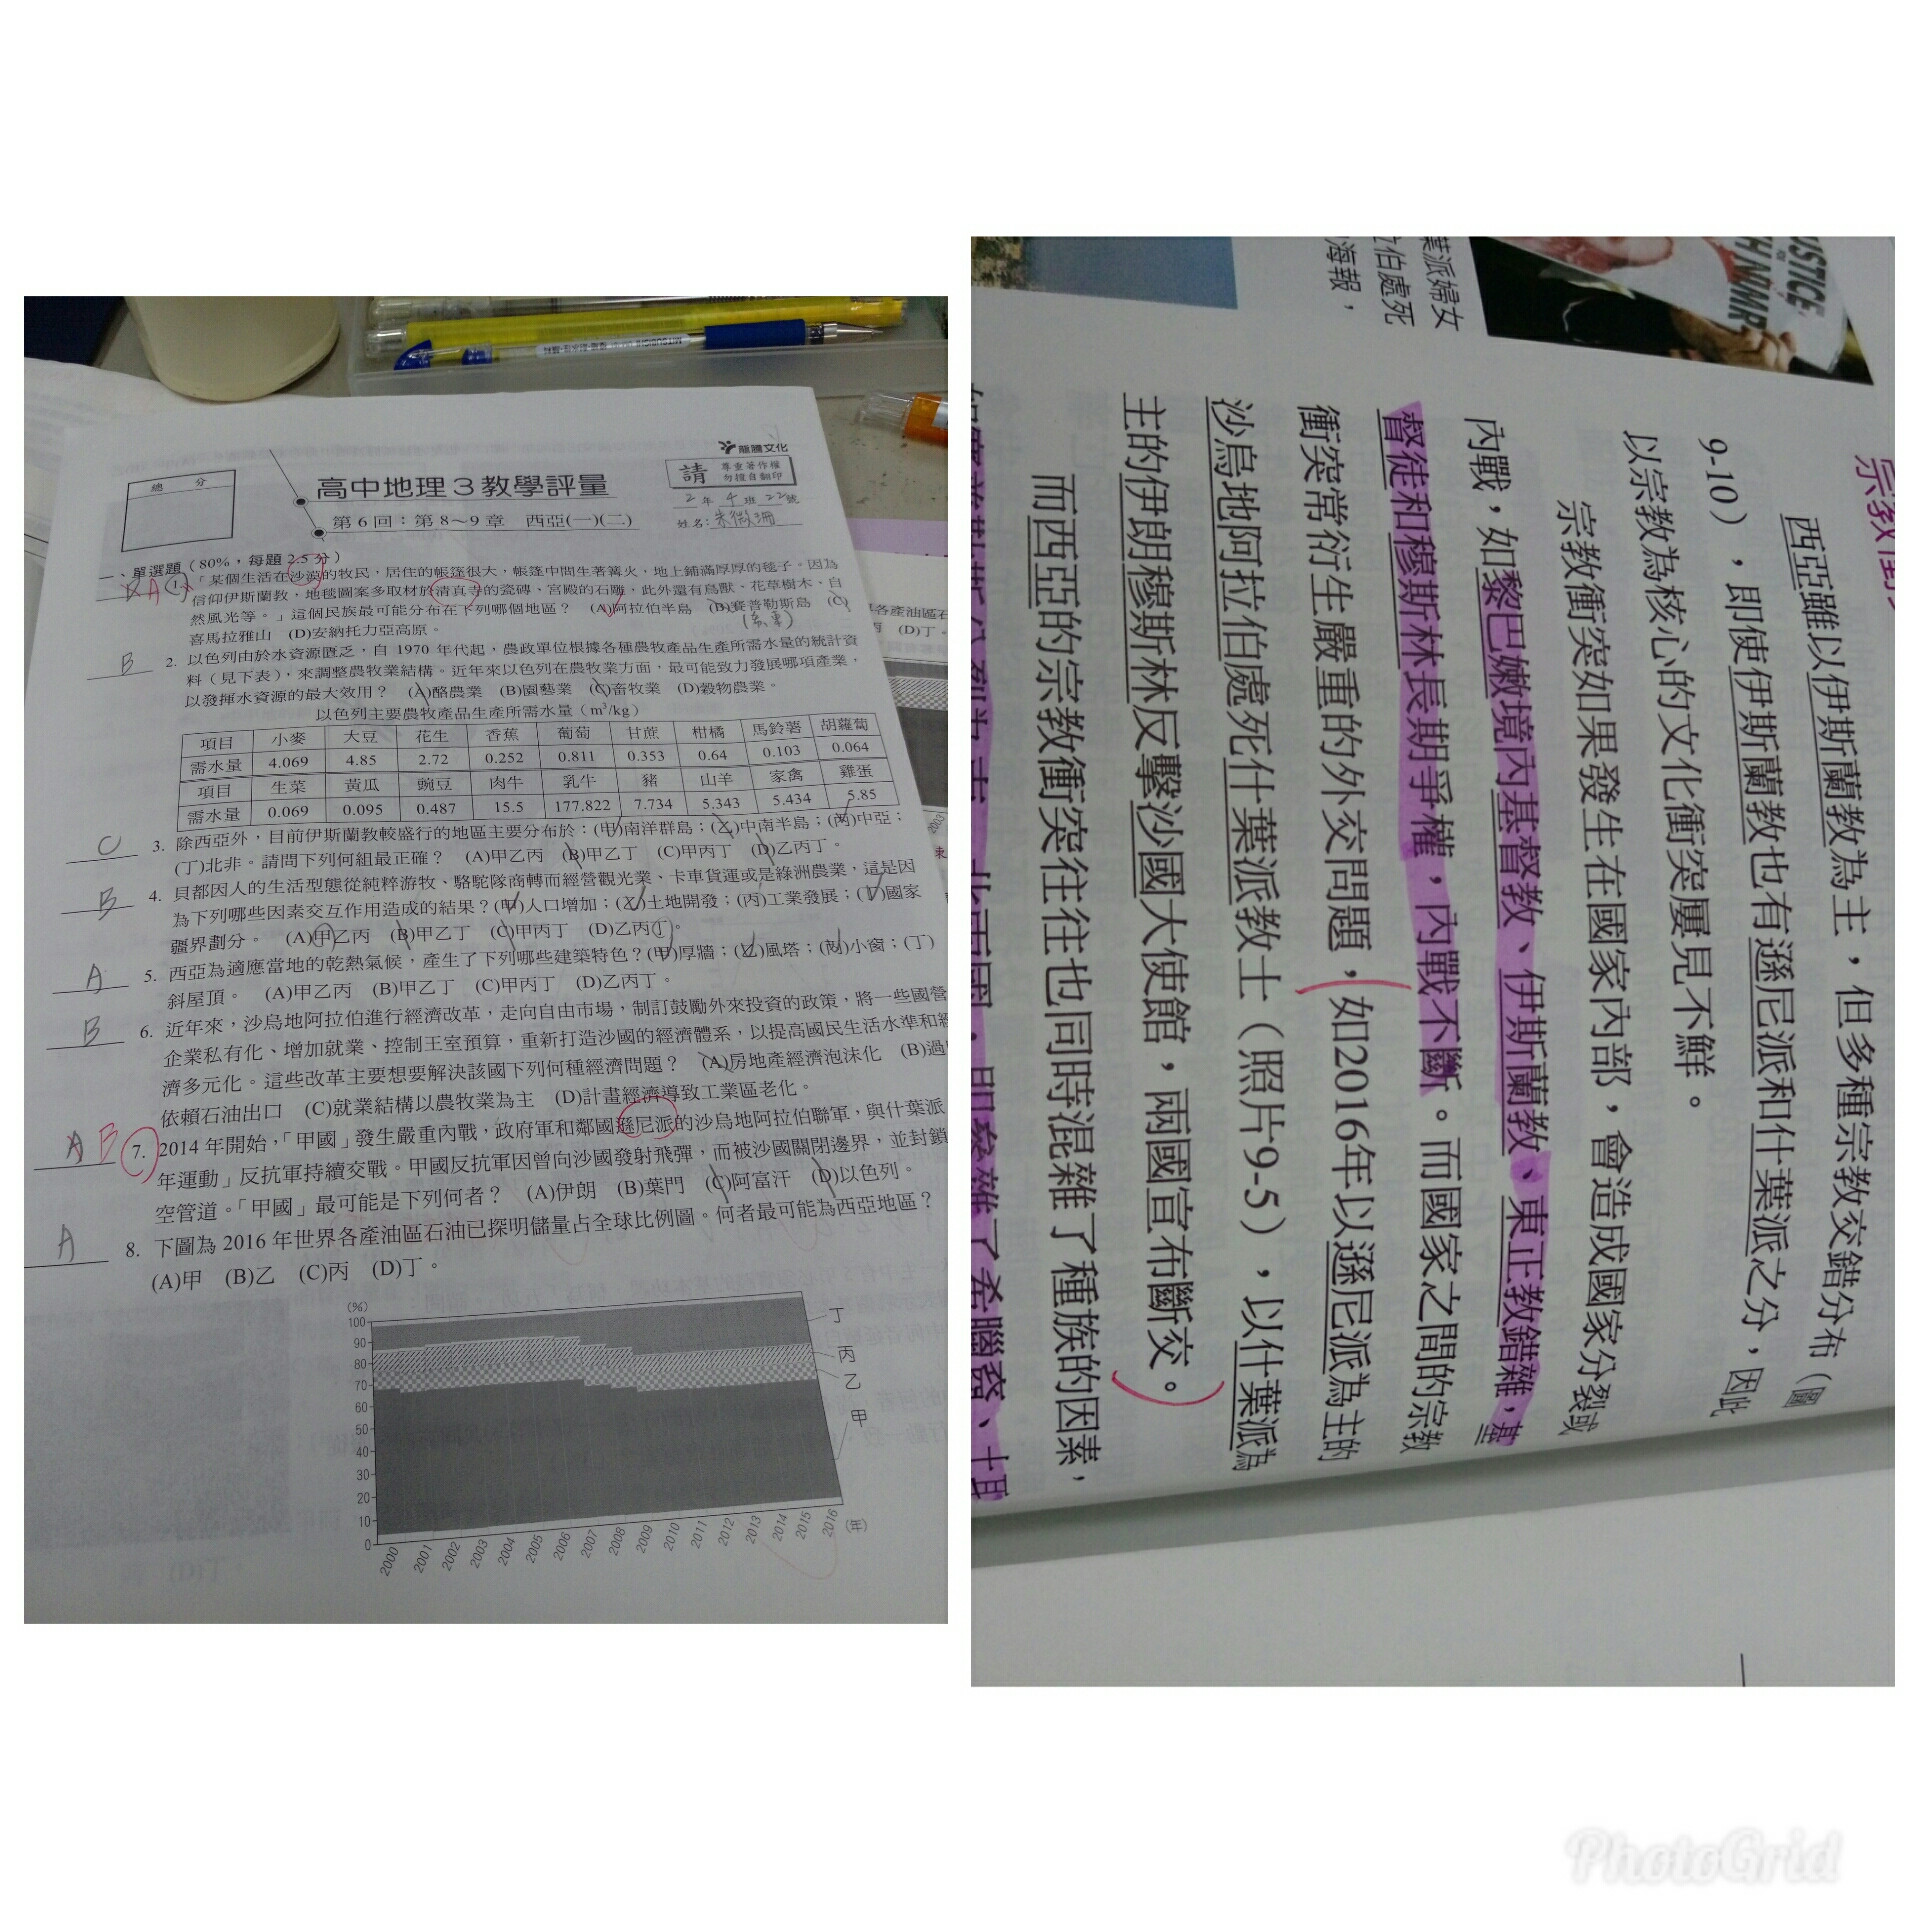 龍騰文化
總 分
高中地理3教學評量
請 尊重著作權 勿擅自翻印
第6回：第8～9章 西亞(一)(二)
2年4班22號
姓名：
一、單選題（80%，每題2.5分）
A 1. 「某個生活在沙漠的牧民，居住的帳篷很大，帳篷中間生著篝火，地上鋪滿厚厚的毯子。因為
信仰伊斯蘭教，地毯圖案多取材於清真寺的瓷磚、宮殿的石雕，此外還有鳥獸、花草樹木、自
然風光等。」這個民族最可能分布在下列哪個地區？ (A)阿拉伯半島 (B)賽普勒斯島 (C)
喜馬拉雅山 (D)安納托力亞高原。
B 2. 以色列由於水資源匱乏，自 1970 年代起，農政單位根據各種農牧產品生產所需水量的統計資
料（見下表），來調整農牧業結構。近年來以色列在農牧業方面，最可能致力發展哪項產業，
以發揮水資源的最大效用？ (A)酪農業 (B)園藝業 (C)畜牧業 (D)穀物農業。
以色列主要農牧產品生產所需水量（m³/kg）
項目 小麥 大豆 花生 香蕉 葡萄 甘蔗 柑橘 馬鈴薯 胡蘿蔔
需水量 4.069 4.85 2.72 0.252 0.811 0.353 0.64 0.103 0.064
項目 生菜 黃瓜 豌豆 肉牛 乳牛 豬 山羊 家禽 雞蛋
需水量 0.069 0.095 0.487 15.5 177.822 7.734 5.343 5.434 5.85
C 3. 除西亞外，目前伊斯蘭教較盛行的地區主要分布於：(甲)南洋群島；(乙)中南半島；(丙)中亞；
(丁)北非。請問下列何組最正確？ (A)甲乙丙 (B)甲乙丁 (C)甲丙丁 (D)乙丙丁。
B 4. 貝都因人的生活型態從純粹游牧、駱駝隊商轉而經營觀光業、卡車貨運或是綠洲農業，這是因
為下列哪些因素交互作用造成的結果？(甲)人口增加；(乙)土地開發；(丙)工業發展；(丁)國家
疆界劃分。 (A)甲乙丙 (B)甲乙丁 (C)甲丙丁 (D)乙丙丁。
A 5. 西亞為適應當地的乾熱氣候，產生了下列哪些建築特色？(甲)厚牆；(乙)風塔；(丙)小窗；(丁)
斜屋頂。 (A)甲乙丙 (B)甲乙丁 (C)甲丙丁 (D)乙丙丁。
B 6. 近年來，沙烏地阿拉伯進行經濟改革，走向自由市場，制訂鼓勵外來投資的政策，將一些國營
企業私有化、增加就業、控制王室預算，重新打造沙國的經濟體系，以提高國民生活水準和經
濟多元化。這些改革主要想要解決該國下列何種經濟問題？ (A)房地產經濟泡沫化 (B)過
依賴石油出口 (C)就業結構以農牧業為主 (D)計畫經濟導致工業區老化。
A B 7. 2014 年開始，「甲國」發生嚴重內戰，政府軍和鄰國遜尼派的沙烏地阿拉伯聯軍，與什葉派
年運動」反抗軍持續交戰。甲國反抗軍因曾向沙國發射飛彈，而被沙國關閉邊界，並封鎖
空管道。「甲國」最可能是下列何者？ (A)伊朗 (B)葉門 (C)阿富汗 (D)以色列。
A 8. 下圖為 2016 年世界各產油區石油已探明儲量占全球比例圖。何者最可能為西亞地區？
(A)甲 (B)乙 (C)丙 (D)丁。
(%)
100
90
80
70
60
50
40
30
20
10
0
丁
丙
乙
甲
2000 2001 2002 2003 2004 2005 2006 2007 2008 2009 2010 2011 2012 2013 2014 2015 2016 (年)
各產油區石
(D)丁。
2003
USTICE
FOR
H NMR
葉派婦女
伯處死
海報，
西亞雖以伊斯蘭教為主，但多種宗教交錯分布（圖
9-10），即使伊斯蘭教也有遜尼派和什葉派之分，因此
以宗教為核心的文化衝突屢見不鮮。
宗教衝突如果發生在國家內部，會造成國家分裂或
內戰，如黎巴嫩境內基督教、伊斯蘭教、東正教錯雜，基
督徒和穆斯林長期爭權，內戰不斷。而國家之間的宗教
衝突常衍生嚴重的外交問題，如2016年以遜尼派為主的
沙烏地阿拉伯處死什葉派教士（照片9-5），以什葉派為
主的伊朗穆斯林反擊沙國大使館，兩國宣布斷交。
而西亞的宗教衝突往往也同時混雜了種族的因素，
PhotoGrid